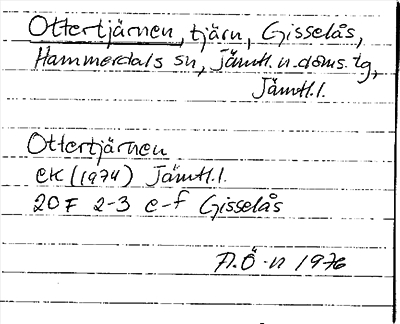 Ottertjärnen, tjärn, Gisselås,
Hammerdals sn, Jämtl. n. doms. tg,
Jämtl. l.
Ottertjärnen
ek (1974) Jämtl. l.
20F 2-3 e-f Gisselås
A.Ö-n 1976